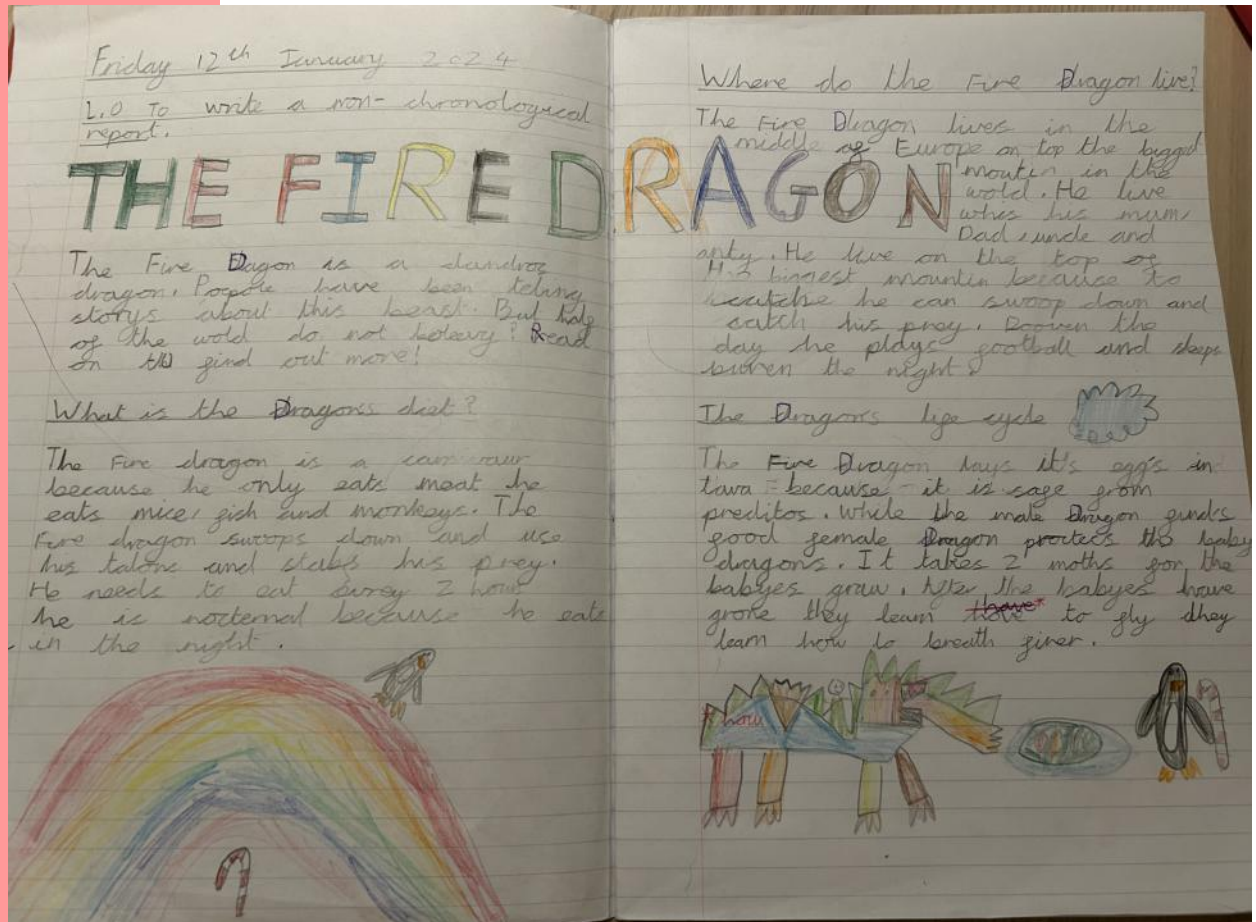 Friday 12th January 2024
L.O To write a non-chronological
report.
THE FIRE DRAGON
The Fire Dagon is a dandros
dragon. Popole have been teling
storys about this beast. But half
of the wold do not beleavy? Read
on to find out more!
What is the Dragons diet?
The Fire dragon is a
because he only eats meat he
eats mice, fish and monkeys. The
Fire dragon swoops down and use
his talons and stabs his prey.
He needs to eat evrey 2 hours
he is nocternal because he eats
in the night.
Where do the Fire Dragon live?
The Fire Dragon lives in the
middle of Europe on top the biggest
moutin in the
wold. He live
whis his mum,
Dad, uncle and
anty. He live on the top of
the biggest mountin because to
catche he can swoop down and
catch his prey. the
day he plays football and sleeps
the night.
The Dragon's life cycle
The Fire Dragon lays it's egg's in
lava because it is safe from
preditos. While the male Dragon finds
food female Dragon protects the baby
dragons. It takes 2 moths for the
babyes grow. After the babyes have
grone they learn to fly they
learn how to breath firer.
how